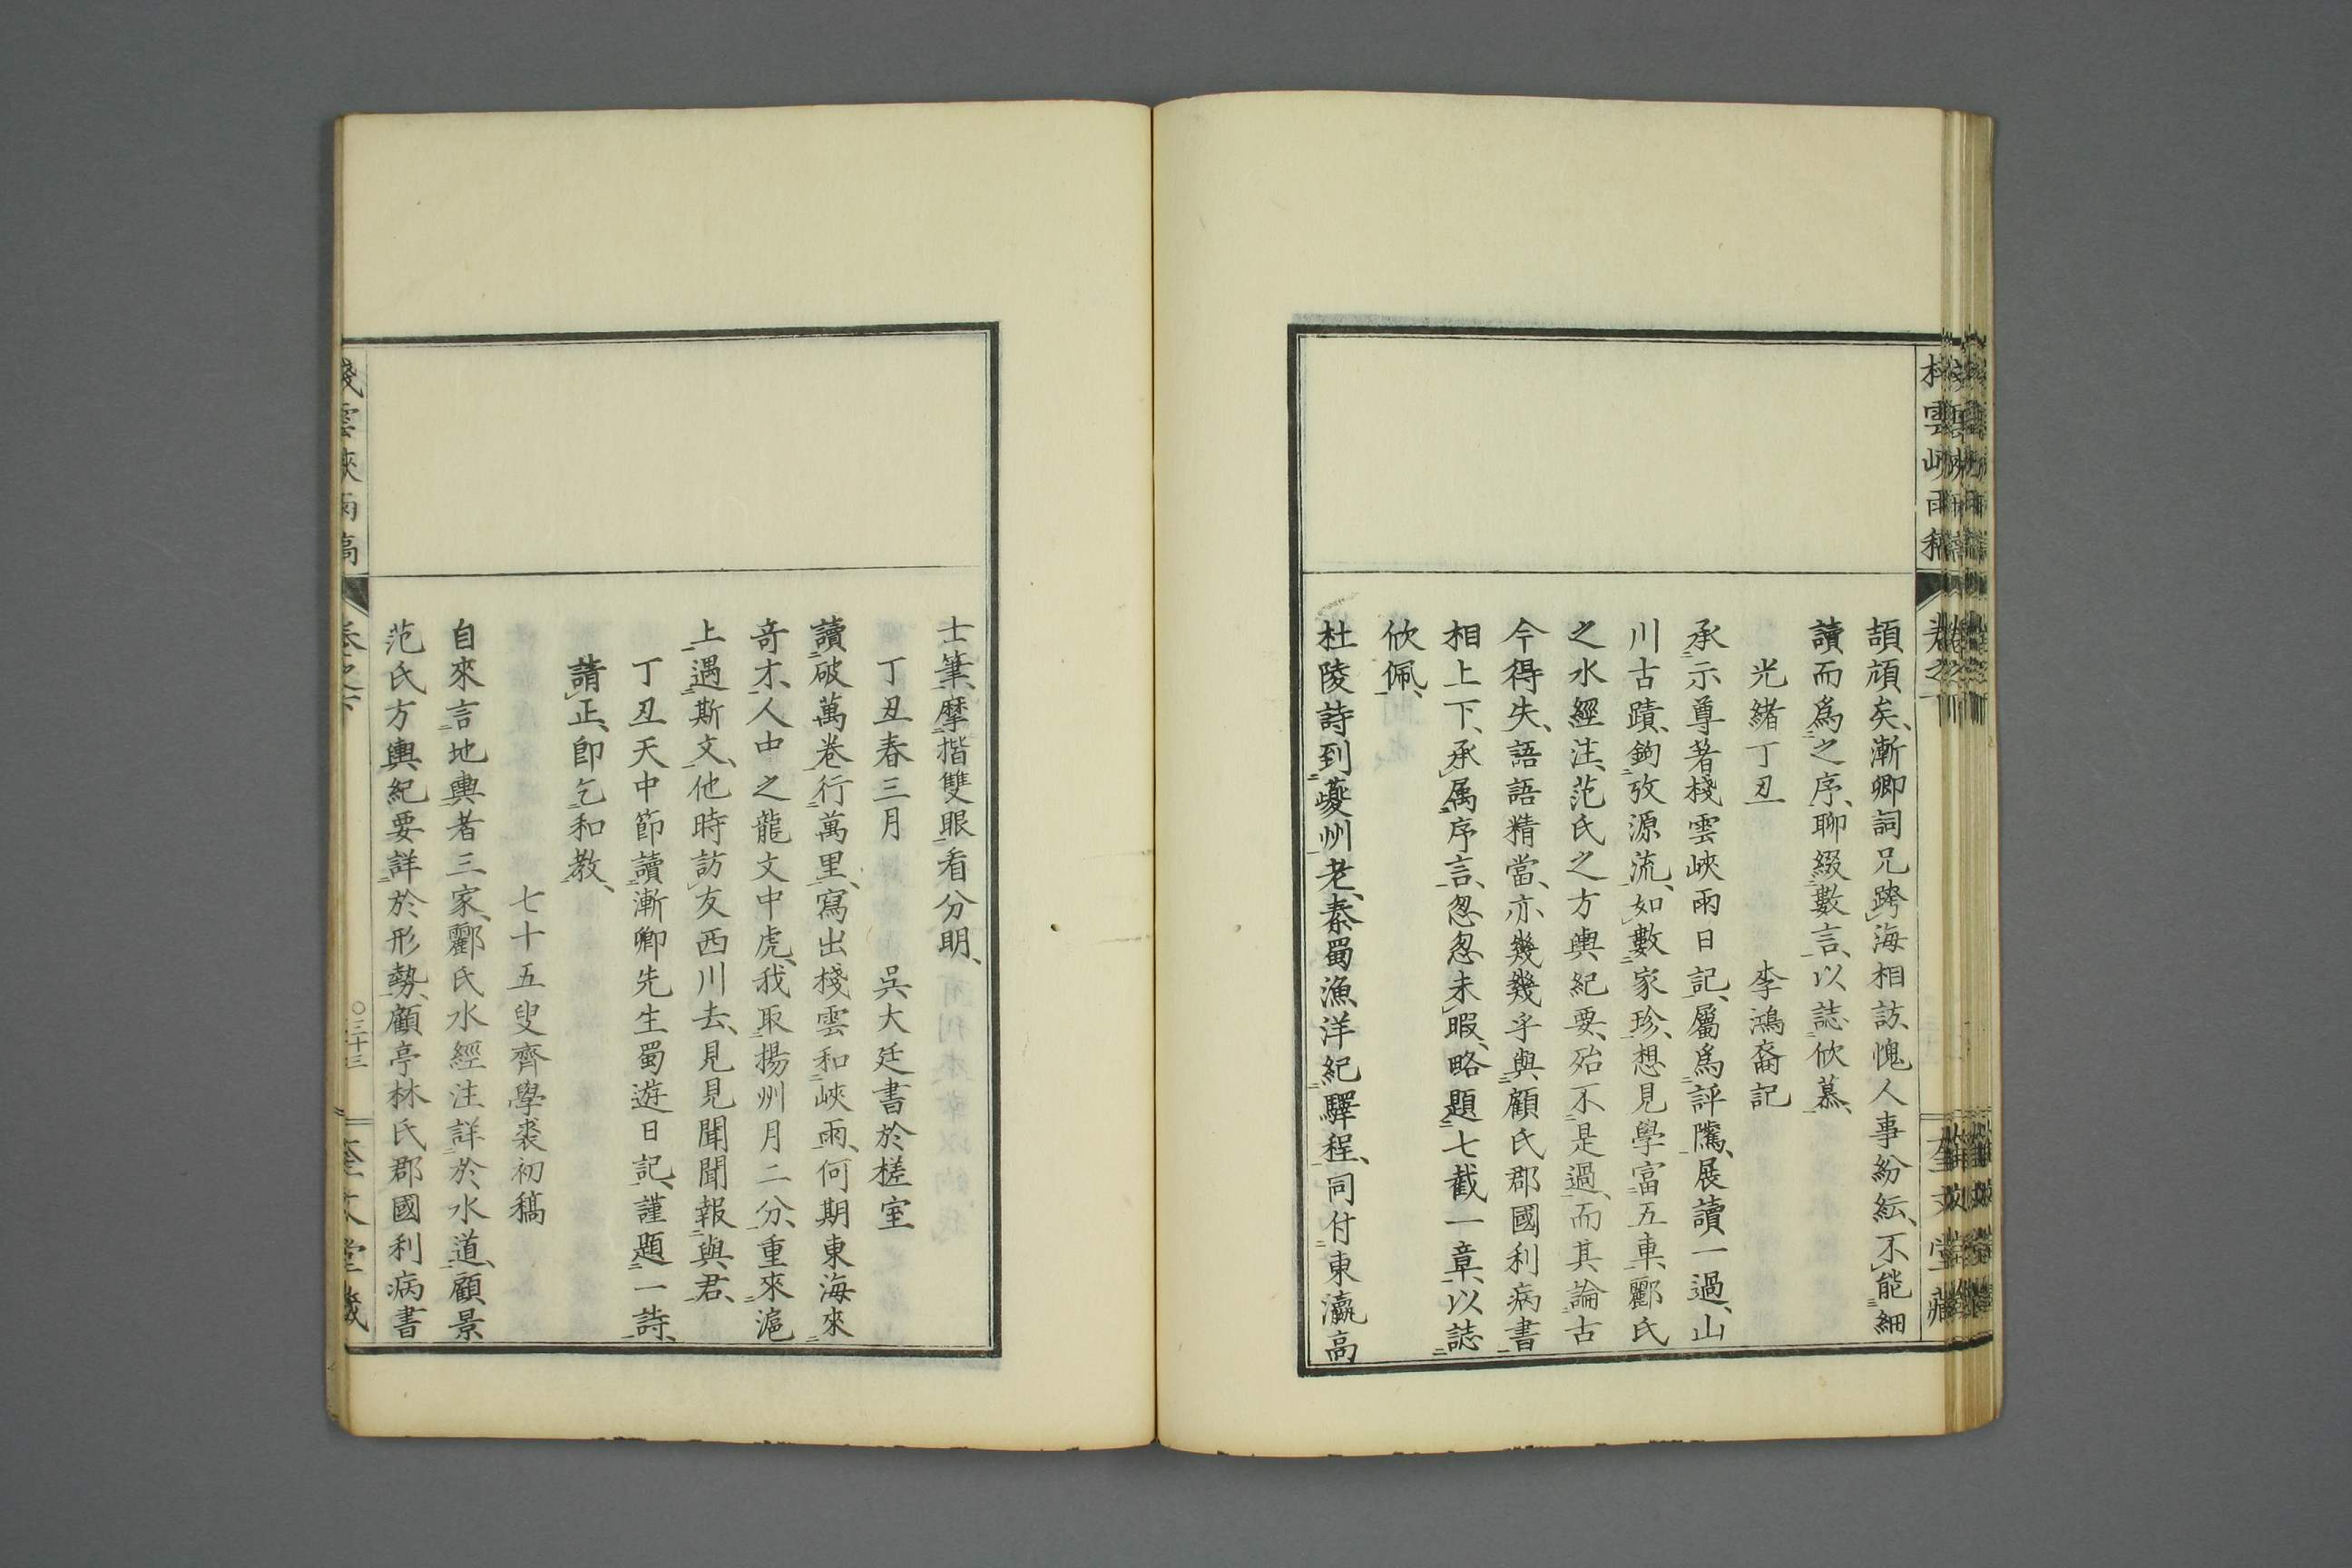 頡頏矣、漸卿詞兄跨海相訪、愧人事紛紜、不能細
讀而爲之序、聊綴數言、以誌欣慕、
光緒丁丑　李鴻裔記
承示尊著棧雲峽雨日記、屬爲評隲、展讀一過、山
川古蹟、鉤攷源流、如數家珍、想見學富五車、酈氏
之水經注、范氏之方輿紀要、殆不是過、而其論古
今得失、語語精當、亦幾幾乎與顧氏郡國利病書
相上下、承属序言、忽忽未暇、略題七截一章、以誌
欣佩、
杜陵詩到夔州老、秦蜀漁洋紀驛程、同付東瀛高
士筆、摩揩雙眼看分明、
丁丑春三月　吳大廷書於槎室
讀破萬卷行萬里、寫出棧雲和峽雨、何期東海來
奇才、人中之龍文中虎、我取揚州月二分、重來滬
上遇斯文、他時訪友西川去、見見聞聞報與君、
丁丑天中節讀漸卿先生蜀遊日記、謹題一詩、
請正、卽乞和教、
七十五叟齊學裘初稿
自來言地輿者三家、酈氏水經注詳於水道、顧景
范氏方輿紀要詳於形勢、顧亭林氏郡國利病書
棧雲峽雨稿
卷之下
〇三十三
奎文堂藏